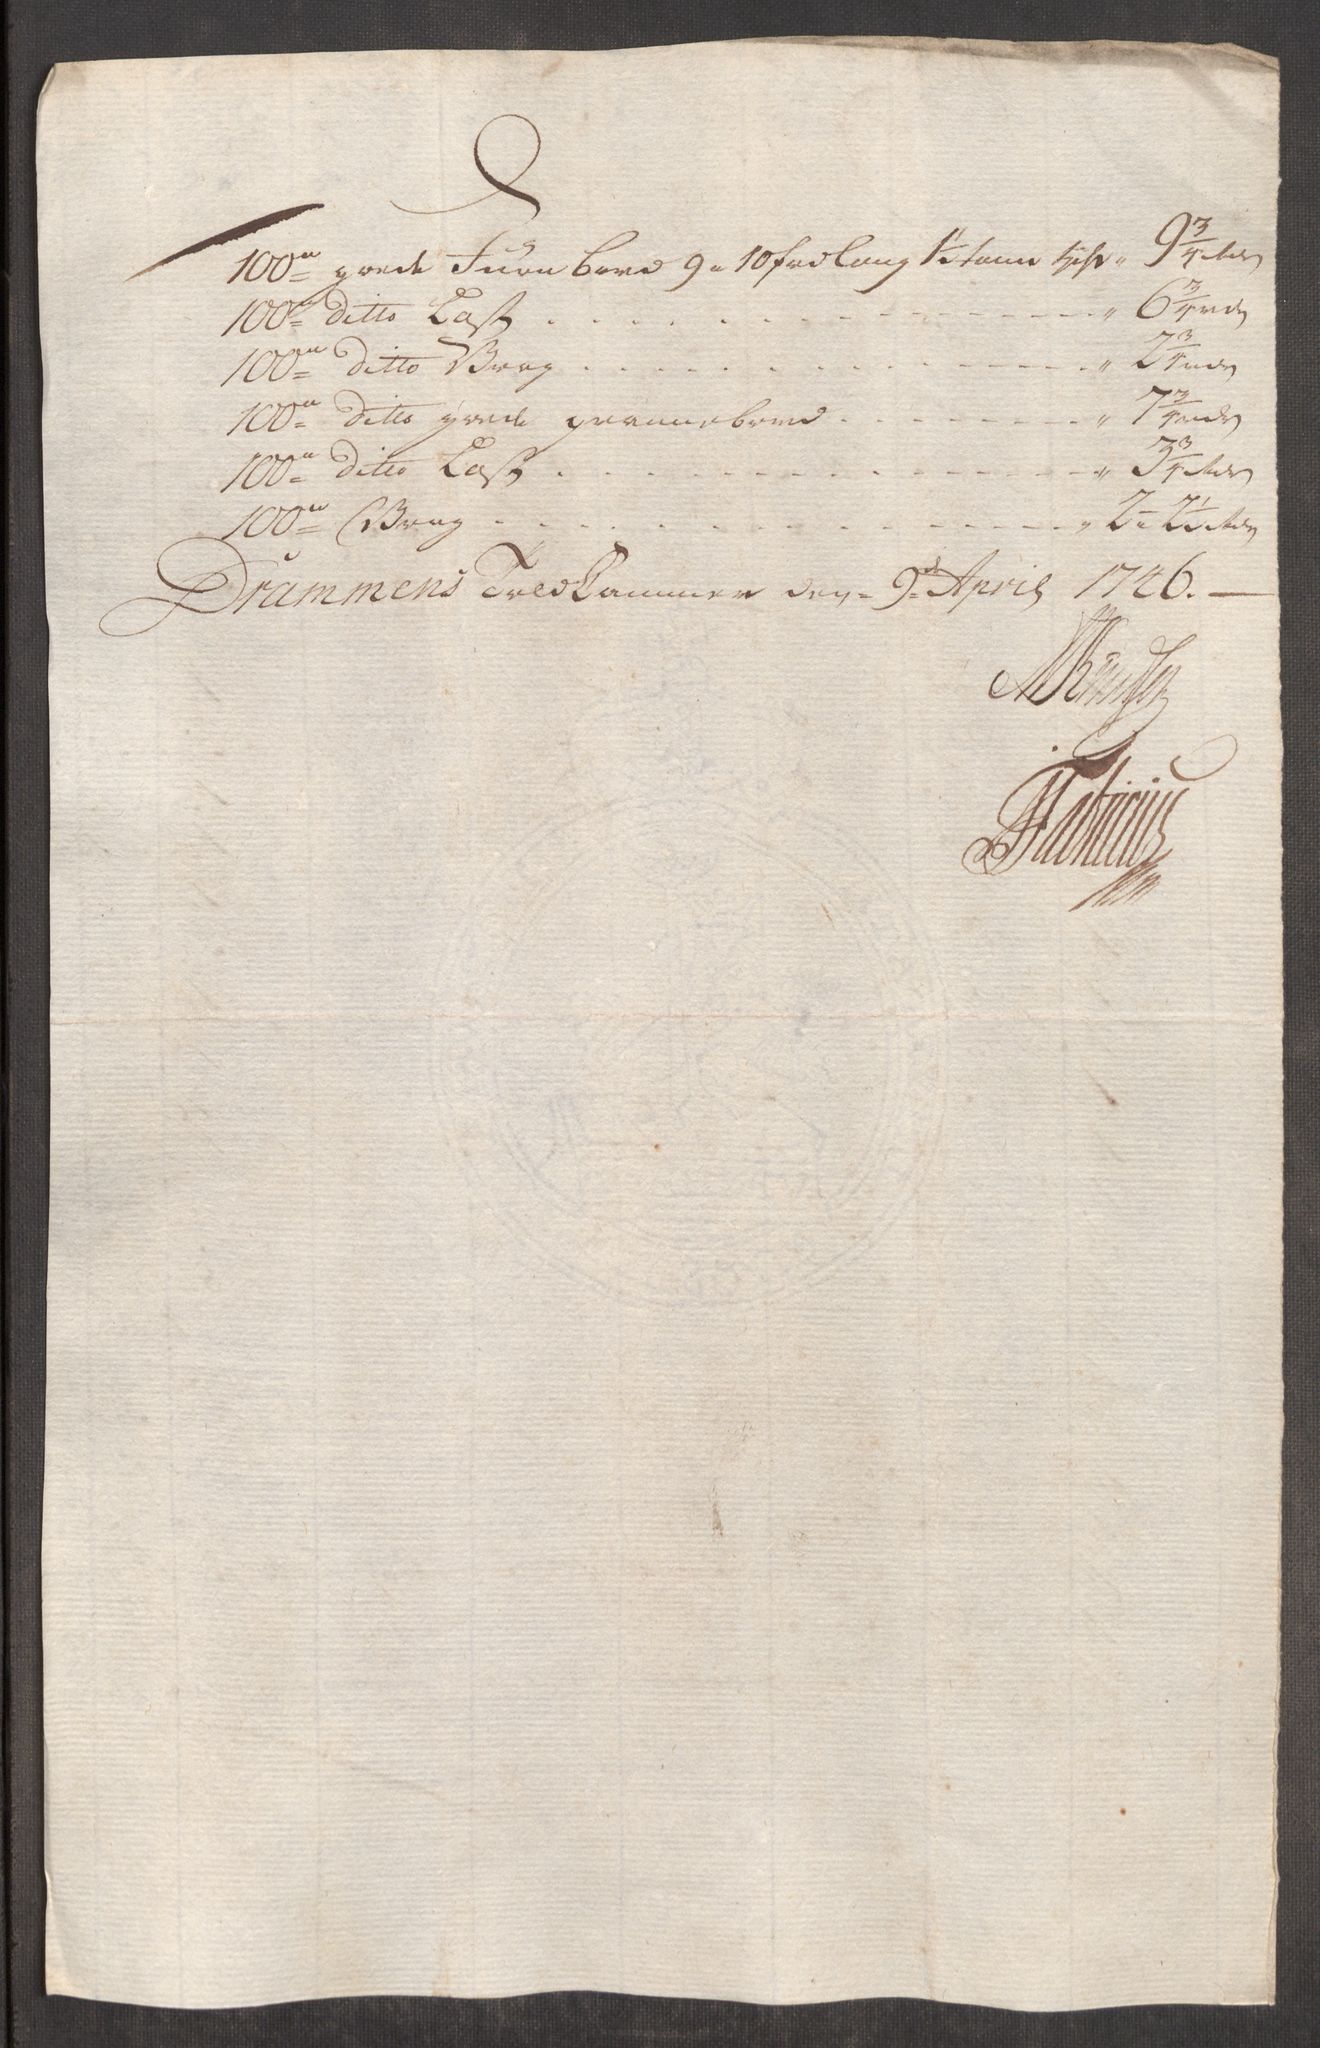 100de gode Furu bord 9 a 10 fod lang 1¼ tomme tyk " 9¾ rdr
100de ditto Last " 6¾ rdr
100de ditto Vrag " 2¾ rdr
100de ditto gode granebord " 7¾ rdr
100de ditto Last " 3¾ rdr
100de Vrag " 2 a 2½ rdr
Drammens Toldkammer den 9de April 1746.
Fabricius